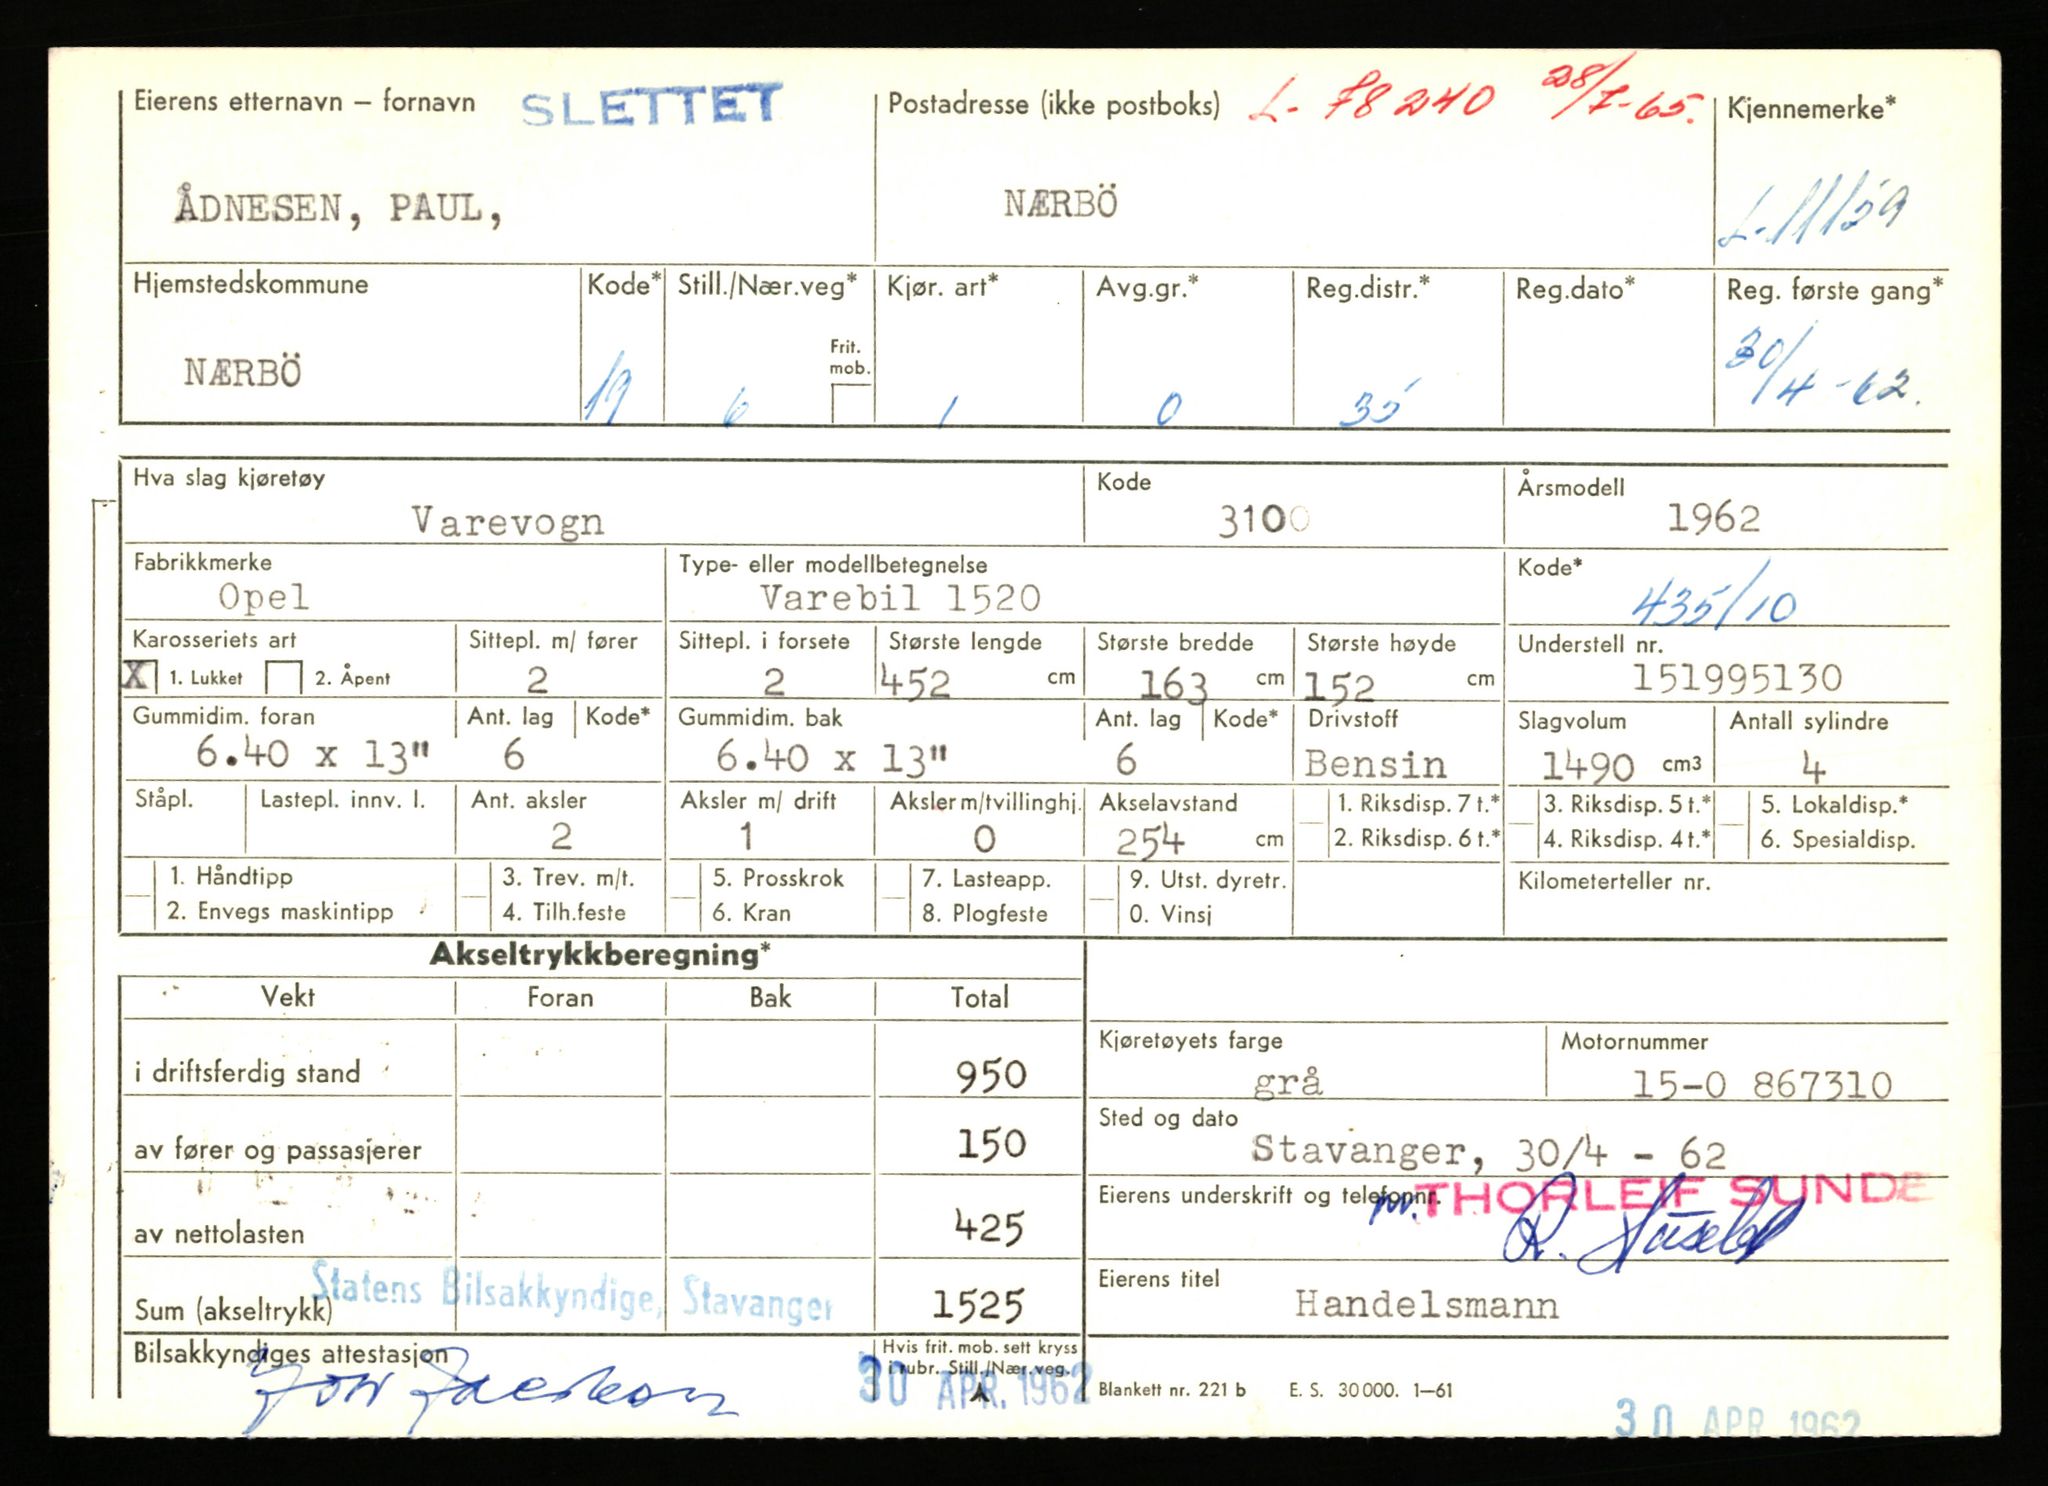 Eierens etternavn – fornavn SLETTET Postadresse (ikke postboks) L- 78240 28/7-65. Kjennemerke*
ÅDNESEN, PAUL, NÆRBÖ L-11159
Hjemstedskommune Kode* Still./Nær.veg* Kjør. art* Avg.gr.* Reg.distr.* Reg.dato* Reg. første gang*
Frit. mob.
NÆRBÖ 19 6 1 0 35 30/4-62.
Hva slag kjøretøy Kode Årsmodell
Varevogn 3100 1962
Fabrikkmerke Type- eller modellbetegnelse Kode*
Opel Varebil 1520 435/10
Karosseriets art Sittepl. m/ fører Sittepl. i forsete Største lengde Største bredde Største høyde Understell nr.
X 1. Lukket 2. Åpent 2 2 452 cm 163 cm 152 cm 151995130
Gummidim. foran Ant. lag Kode* Gummidim. bak Ant. lag Kode* Drivstoff Slagvolum Antall sylindre
6.40 x 13" 6 6.40 x 13" 6 Bensin 1490 cm3 4
Ståpl. Lastepl. innv. l. Ant. aksler Aksler m/ drift Aksler m/tvillinghj. Akselavstand 1. Riksdisp. 7 t.* 3. Riksdisp. 5 t.* 5. Lokaldisp.*
2 1 0 254 cm 2. Riksdisp. 6 t.* 4. Riksdisp. 4 t.* 6. Spesialdisp.
1. Håndtipp 3. Trev. m/t. 5. Prosskrok 7. Lasteapp. 9. Utst. dyretr. Kilometerteller nr.
2. Envegs maskintipp 4. Tilh.feste 6. Kran 8. Plogfeste 0. Vinsj
Akseltrykkberegning*
Vekt Foran Bak Total
Kjøretøyets farge Motornummer
i driftsferdig stand 950 grå 15-0 867310
Sted og dato
av fører og passasjerer 150 Stavanger, 30/4 - 62
Eierens underskrift og telefonnr. pr. THORLEIF SUNDE
av nettolasten 425 R.
Eierens titel
Statens Bilsakkyndige, Stavanger
Sum (akseltrykk) 1525 Handelsmann
Bilsakkyndiges attestasjon Hvis frit. mob. sett kryss
i rubr. Still./Nær.veg.
30 APR. 1962 Blankett nr. 221 b E. S. 30 000. 1–61
30 APR. 1962